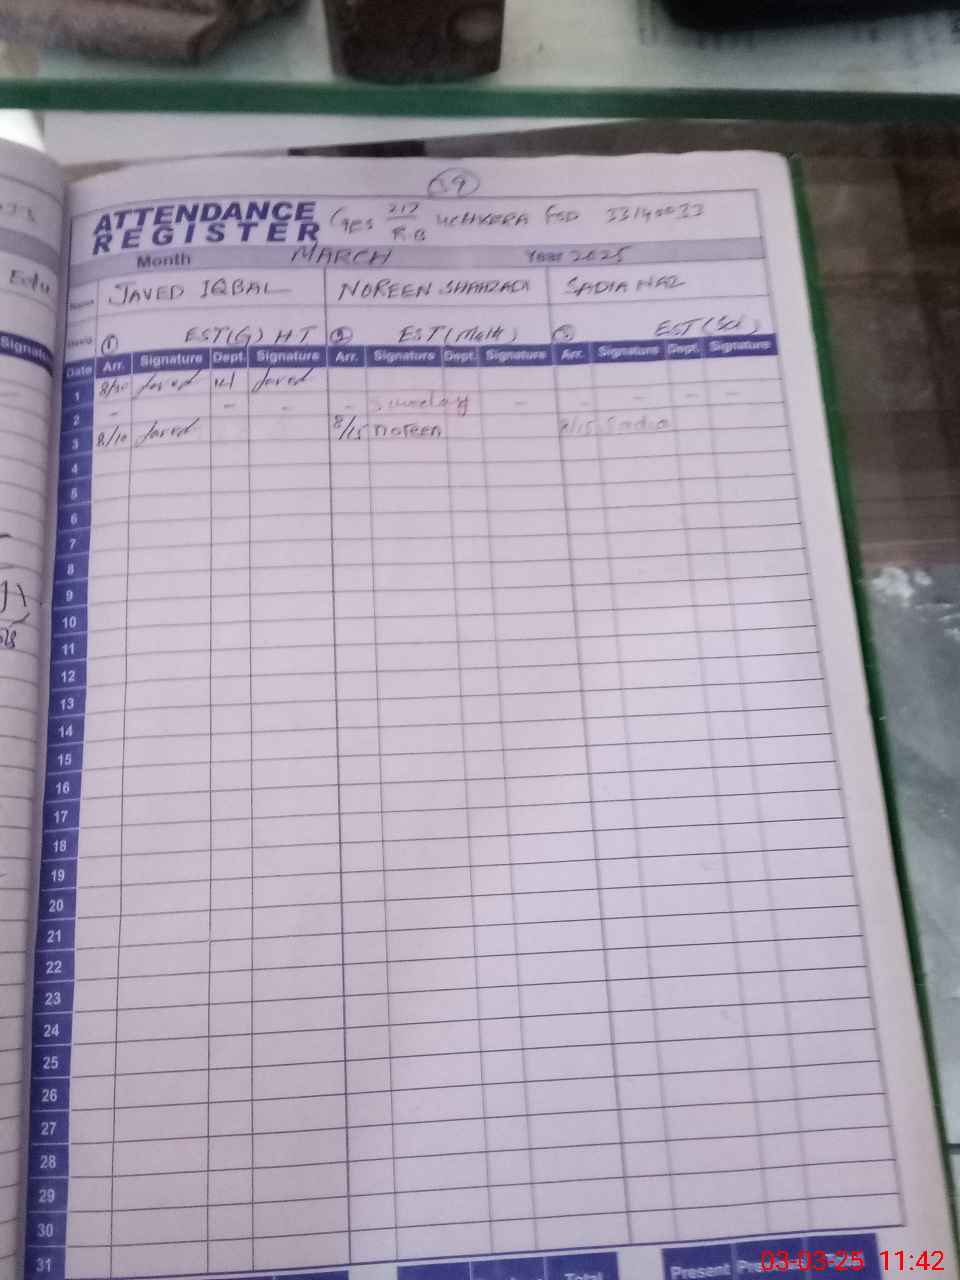 59
ATTENDANCE REGISTER
GES 217 R.B FSD 33140033
Month MARCH Year 2025
Name JAVED IQBAL NOREEN SHAHZADI SADIA NAZ
① EST(G) HT ② EST(Math) EST(Sci)
Date Arr. Signature Dept. Signature Arr. Signature Dept. Signature Arr. Signature Dept. Signature
1 8/10 Javed Javed
2 - - - - Sunday - - - - -
3 8/10 Javed 8/15 Noreen 8/15 Sadia
4
5
6
7
8
9
10
11
12
13
14
15
16
17
18
19
20
21
22
23
24
25
26
27
28
29
30
31
Total Present
03-03-25 11:42